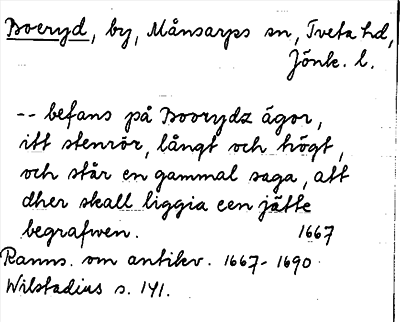 Boeryd, by, Månsarps sn, Tveta hd,
Jönk. l.
-- befans på Boorydz ägor,
itt stenrör, långt och högt,
och står en gammal saga, att
dher skall liggia een jätte
begrafwen. 1667
Ranns. om antikv. 1667-1690
Wilstadius s. 141.